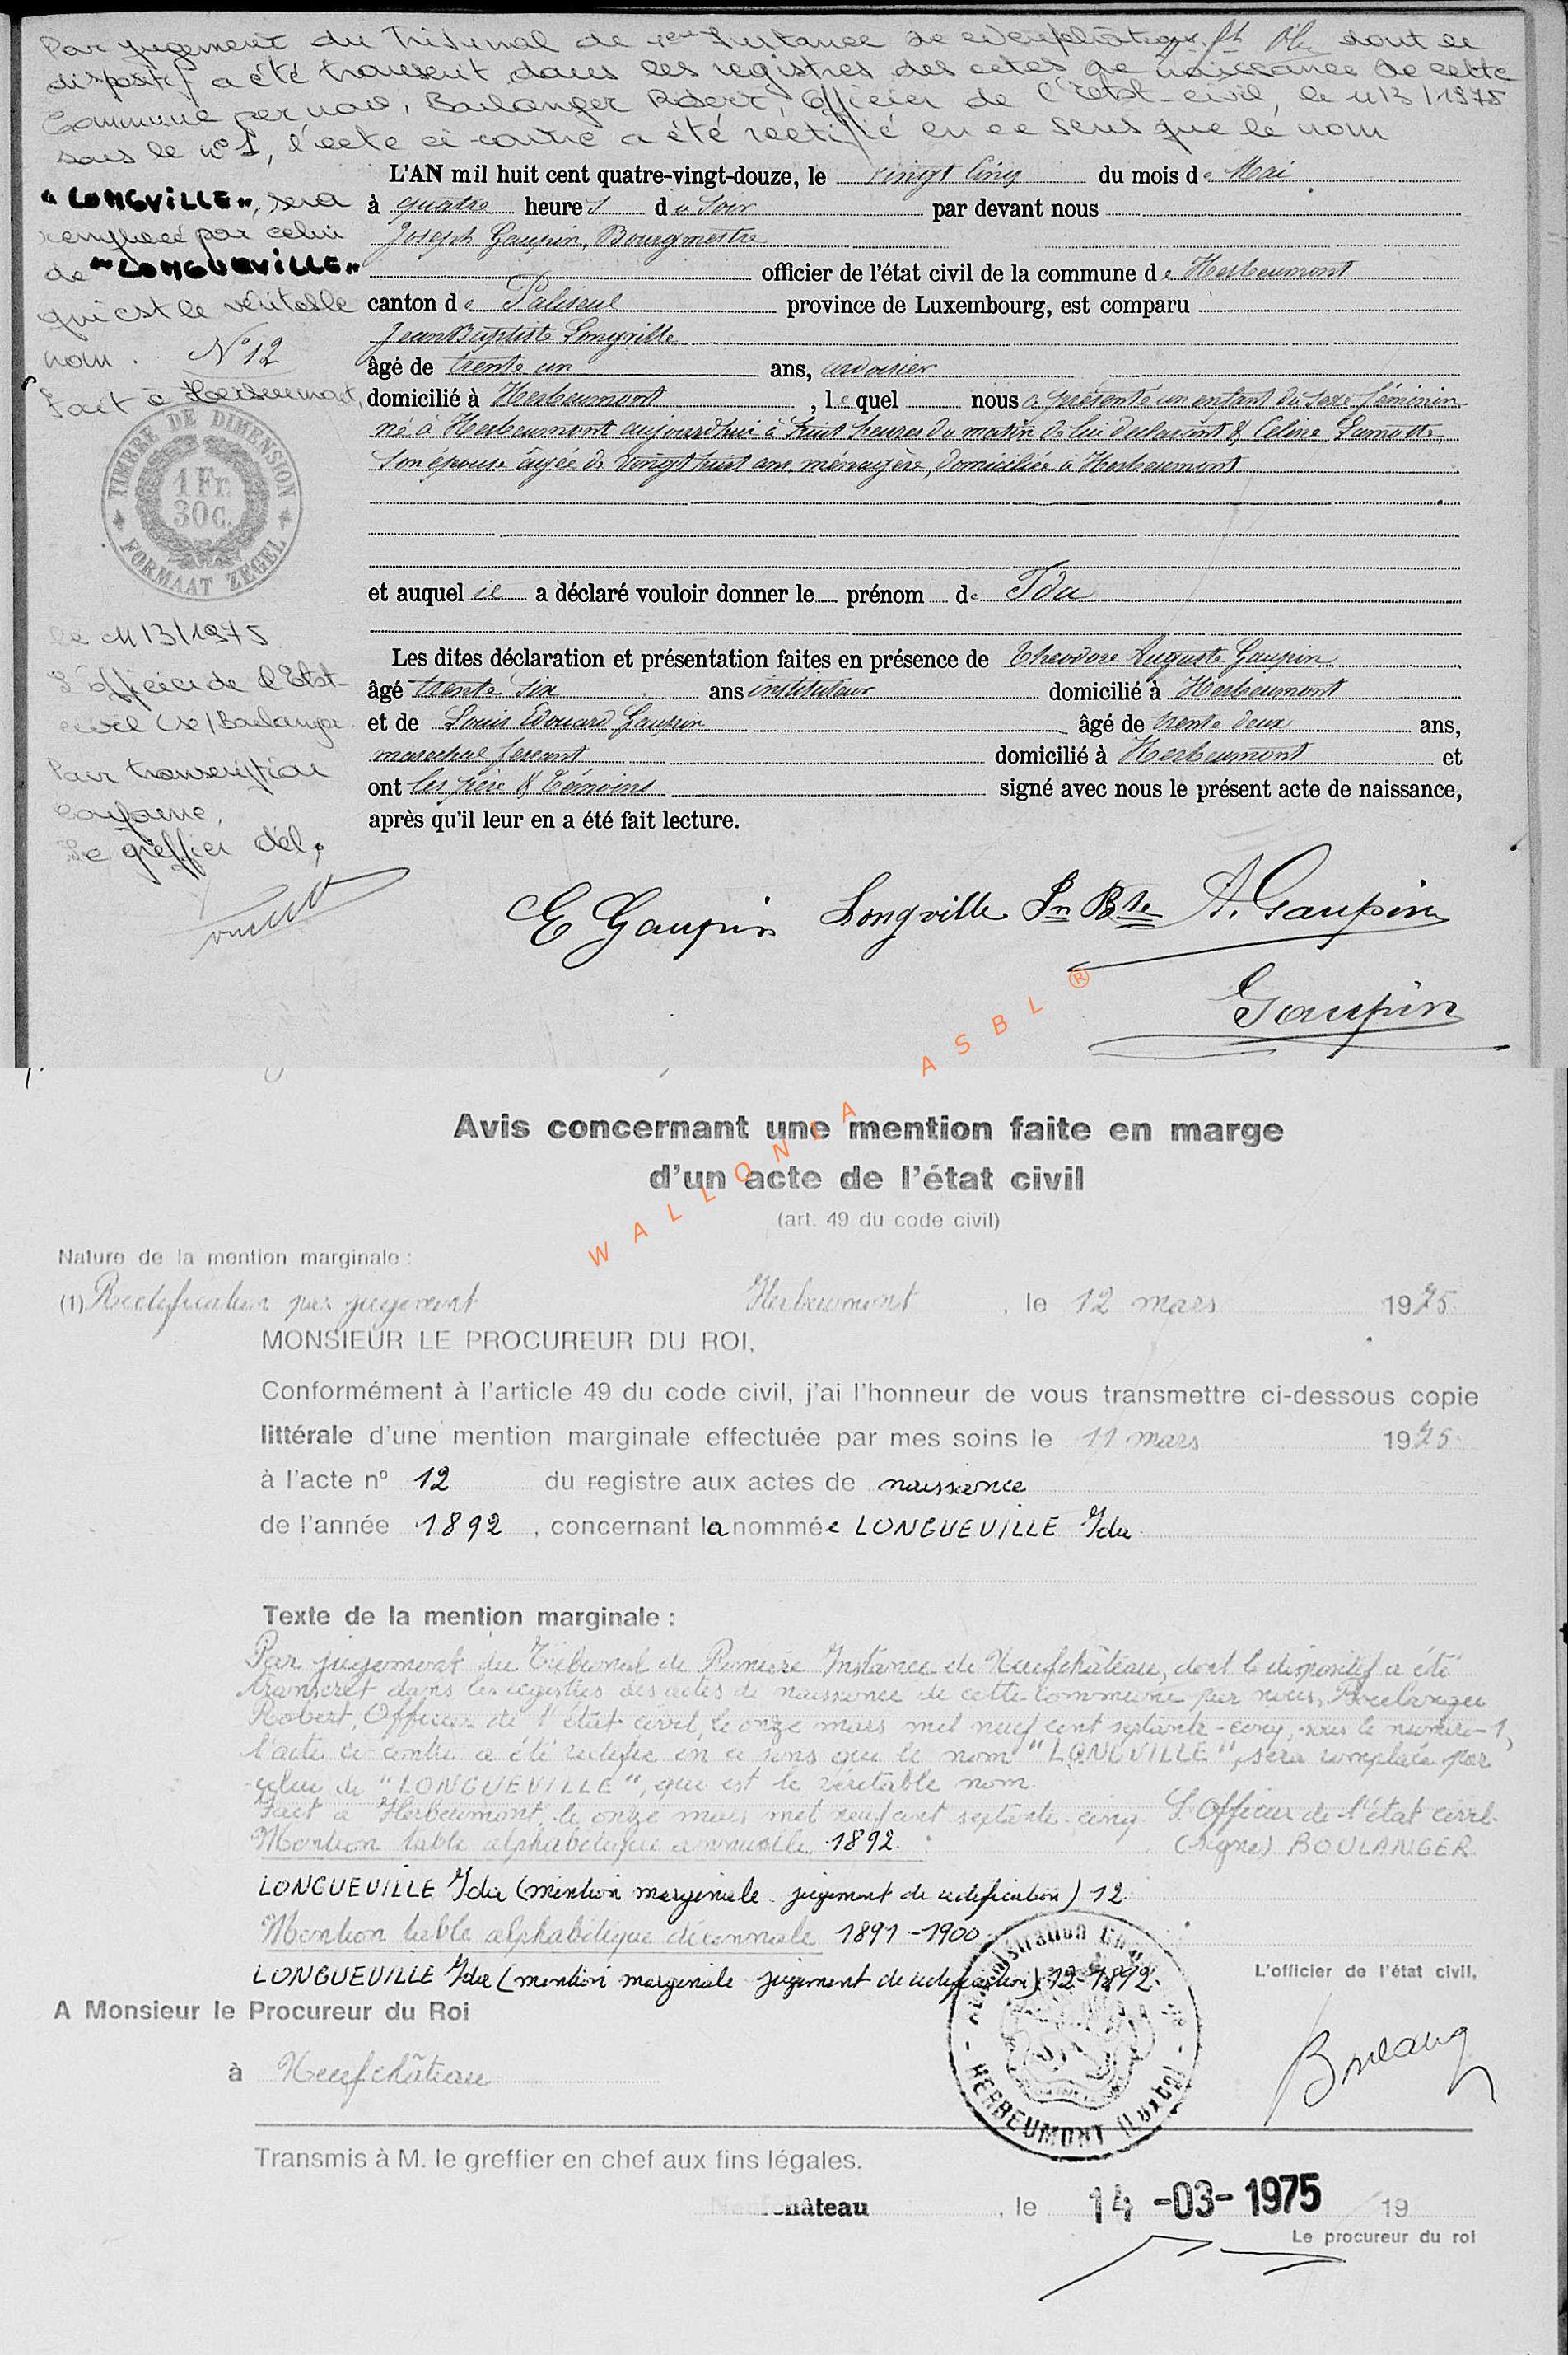 Par jugement du Tribunal de 1ère Instance de Neufchâteau dont le
dispositif a été transcrit dans les registres des actes de naissance de cette
Commune par nous, Boulanger Robert, Officier de l'Etat-civil, le 11/3/1975
sous le n° 1, l'acte ci-contre a été rectifié en ce sens que le nom
"LONGVILLE", sera
remplacé par celui
de "LONGUEVILLE"
qui est le véritable
nom. N° 12
Fait à Herbeumont,
TIMBRE DE DIMENSION
1 Fr.
30 C.
FORMAAT ZEGEL
le 11/3/1975
L'officier de l'Etat-
civil (sé) Boulanger
Pour transcription
conforme,
Le greffier dél,
L'AN mil huit cent quatre-vingt-douze, le vingt cinq du mois de Mai
à quatre heures du soir par devant nous
Joseph Gaupin, Bourgmestre
officier de l'état civil de la commune de Herbeumont
canton de Paliseul province de Luxembourg, est comparu
Jean Baptiste Longville
âgé de trente un ans, ardoisier
domicilié à Herbeumont, lequel nous a présenté un enfant du sexe féminin
né à Herbeumont aujourd'hui à huit heures du matin de lui déclarant & Celine Lamotte
son épouse âgée de vingt huit ans, ménagère, domiciliée à Herbeumont
et auquel il a déclaré vouloir donner le prénom de Ida
Les dites déclaration et présentation faites en présence de Théodore Auguste Gaupin
âgé trente six ans instituteur domicilié à Herbeumont
et de Louis Edouard Gaupin âgé de trente deux ans,
marechal ferrant domicilié à Herbeumont et
ont les père & témoins signé avec nous le présent acte de naissance,
après qu'il leur en a été fait lecture.
E Gaupin Longville Jn Bte A. Gaupin
Gaupin
WALLONIA ASBL ®
Avis concernant une mention faite en marge
d'un acte de l'état civil
(art. 49 du code civil)
Nature de la mention marginale :
(1) Rectification par jugement Herbeumont, le 12 mars 1975
MONSIEUR LE PROCUREUR DU ROI,
Conformément à l'article 49 du code civil, j'ai l'honneur de vous transmettre ci-dessous copie
littérale d'une mention marginale effectuée par mes soins le 11 mars 1975
à l'acte n° 12 du registre aux actes de naissance
de l'année 1892, concernant la nommée LONGUEVILLE Ida
Texte de la mention marginale :
Par jugement du Tribunal de Première Instance de Neufchâteau, dont le dispositif a été
transcrit dans les registres des actes de naissance de cette commune par nous, Boulanger
Robert, Officier de l'état civil, le onze mars mil neuf cent septante-cinq, sous le numéro 1,
l'acte ci-contre a été rectifié en ce sens que le nom "LONGVILLE", sera remplacé par
celui de "LONGUEVILLE", qui est le véritable nom.
Fait à Herbeumont, le onze mars mil neuf cent septante-cinq. L'Officier de l'état civil.
Mention table alphabétique annuelle 1892. (signé) BOULANGER.
LONGUEVILLE Ida (mention marginale jugement de rectification) 12.
Mention table alphabétique décennale 1891-1900
LONGUEVILLE Ida (mention marginale jugement de rectification) 12-1892.
L'officier de l'état civil,
A Monsieur le Procureur du Roi
Boulang
à Neufchâteau
HERBEUMONT (Luxbg)
Transmis à M. le greffier en chef aux fins légales.
Neufchâteau, le 14-03-1975 19
Le procureur du roi